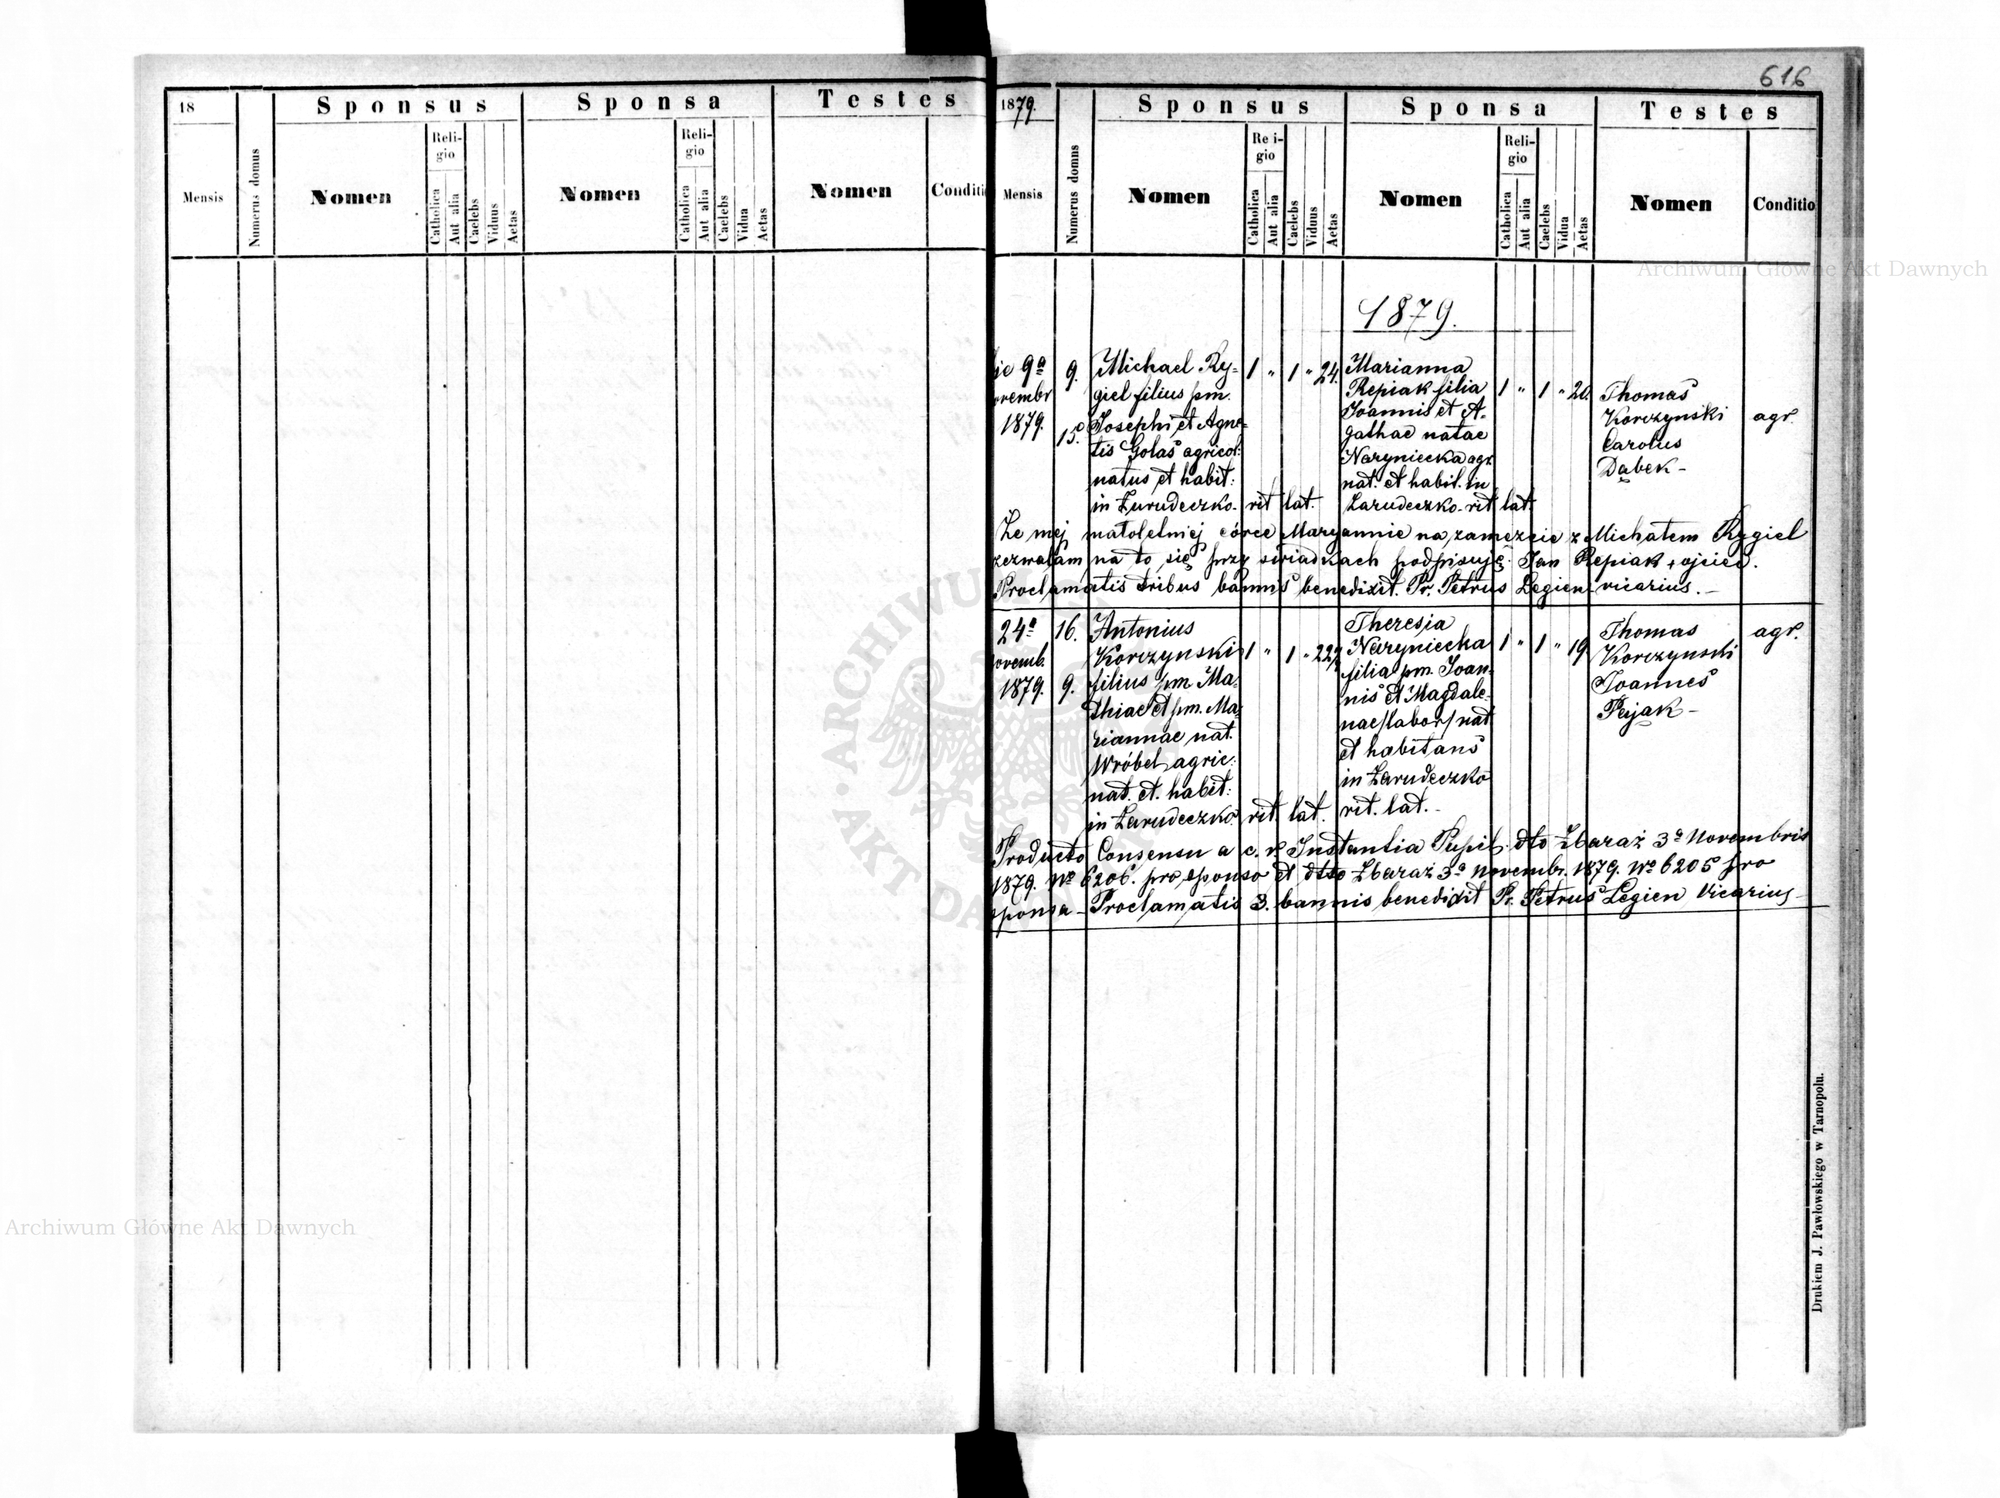 616
18
Sponsus
Sponsa
Testes
Mensis
Numerus domus
Nomen
Religio
Catholica
Aut alia
Caelebs
Viduus
Aetas
Nomen
Religio
Catholica
Aut alia
Caelebs
Vidua
Aetas
Nomen
Conditi
1879.
Sponsus
Sponsa
Testes
Mensis
Numerus domus
Nomen
Re i-
gio
Catholica
Aut alia
Caelebs
Viduus
Aetas
Nomen
Reli-
gio
Catholica
Aut alia
Caelebs
Vidua
Aetas
Nomen
Conditio
1879.
ie 9a
ovembr
1879.
9.
15.
Michael Ry-
giel filius pm.
Josephi et Agne-
tis Gołaś agricol:
natus et habit:
in Zarudeczko. rit lat.
1 " 1 " 24.
Marianna
Repiak filia
Joannis et A-
gathae natae
Naryniecka agr.
nat. et habit. in
Zarudeczko. rit lat.
1 " 1 " 20.
Thomas
Korczynski
Carolus
Dąbek -
agr.
Że mej małoletniej córce Maryannie na zamęzcie z Michałem Rygiel
zezwalam, na to się przy świadkach podpisuję. Jan Repiak + ojciec.
Proclamatis tribus bannis benedixit. Pr. Petrus Legien vicarius. -
24a
ovemb.
1879.
16.
9.
Antonius
Korczynski
filius pm. Ma-
thiae et pm. Ma-
riannae nat.
Wróbel agric:
nat. et. habit:
in Zarudeczko. rit. lat.
1 " 1 " 22
Theresia
Naryniecka
filia pm. Joan-
nis et Magdale-
nae /labor/ nat
et habitans
in Zarudeczko
rit. lat. -
1 " 1 " 19
Thomas
Korczynski
Joannes
Pejak -
agr.
Producto Consensu a c. r. Instantia Pupil. dto Zbaraż 3a Novembris
1879. No 6206. pro sponso et dtto Zbaraż 3a novembr. 1879. No 6205 pro
sponsa - Proclamatis 3. bannis benedixit Pr. Petrus Legien Vicarius -
Drukiem J. Pawłowskiego w Tarnopolu.
Archiwum Główne Akt Dawnych
Archiwum Główne Akt Dawnych